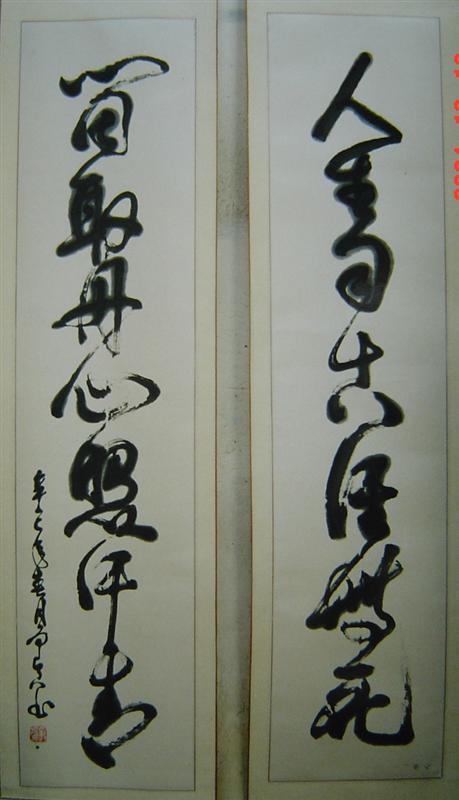 人生自古誰無死
留取丹心照汗青
年春月 書